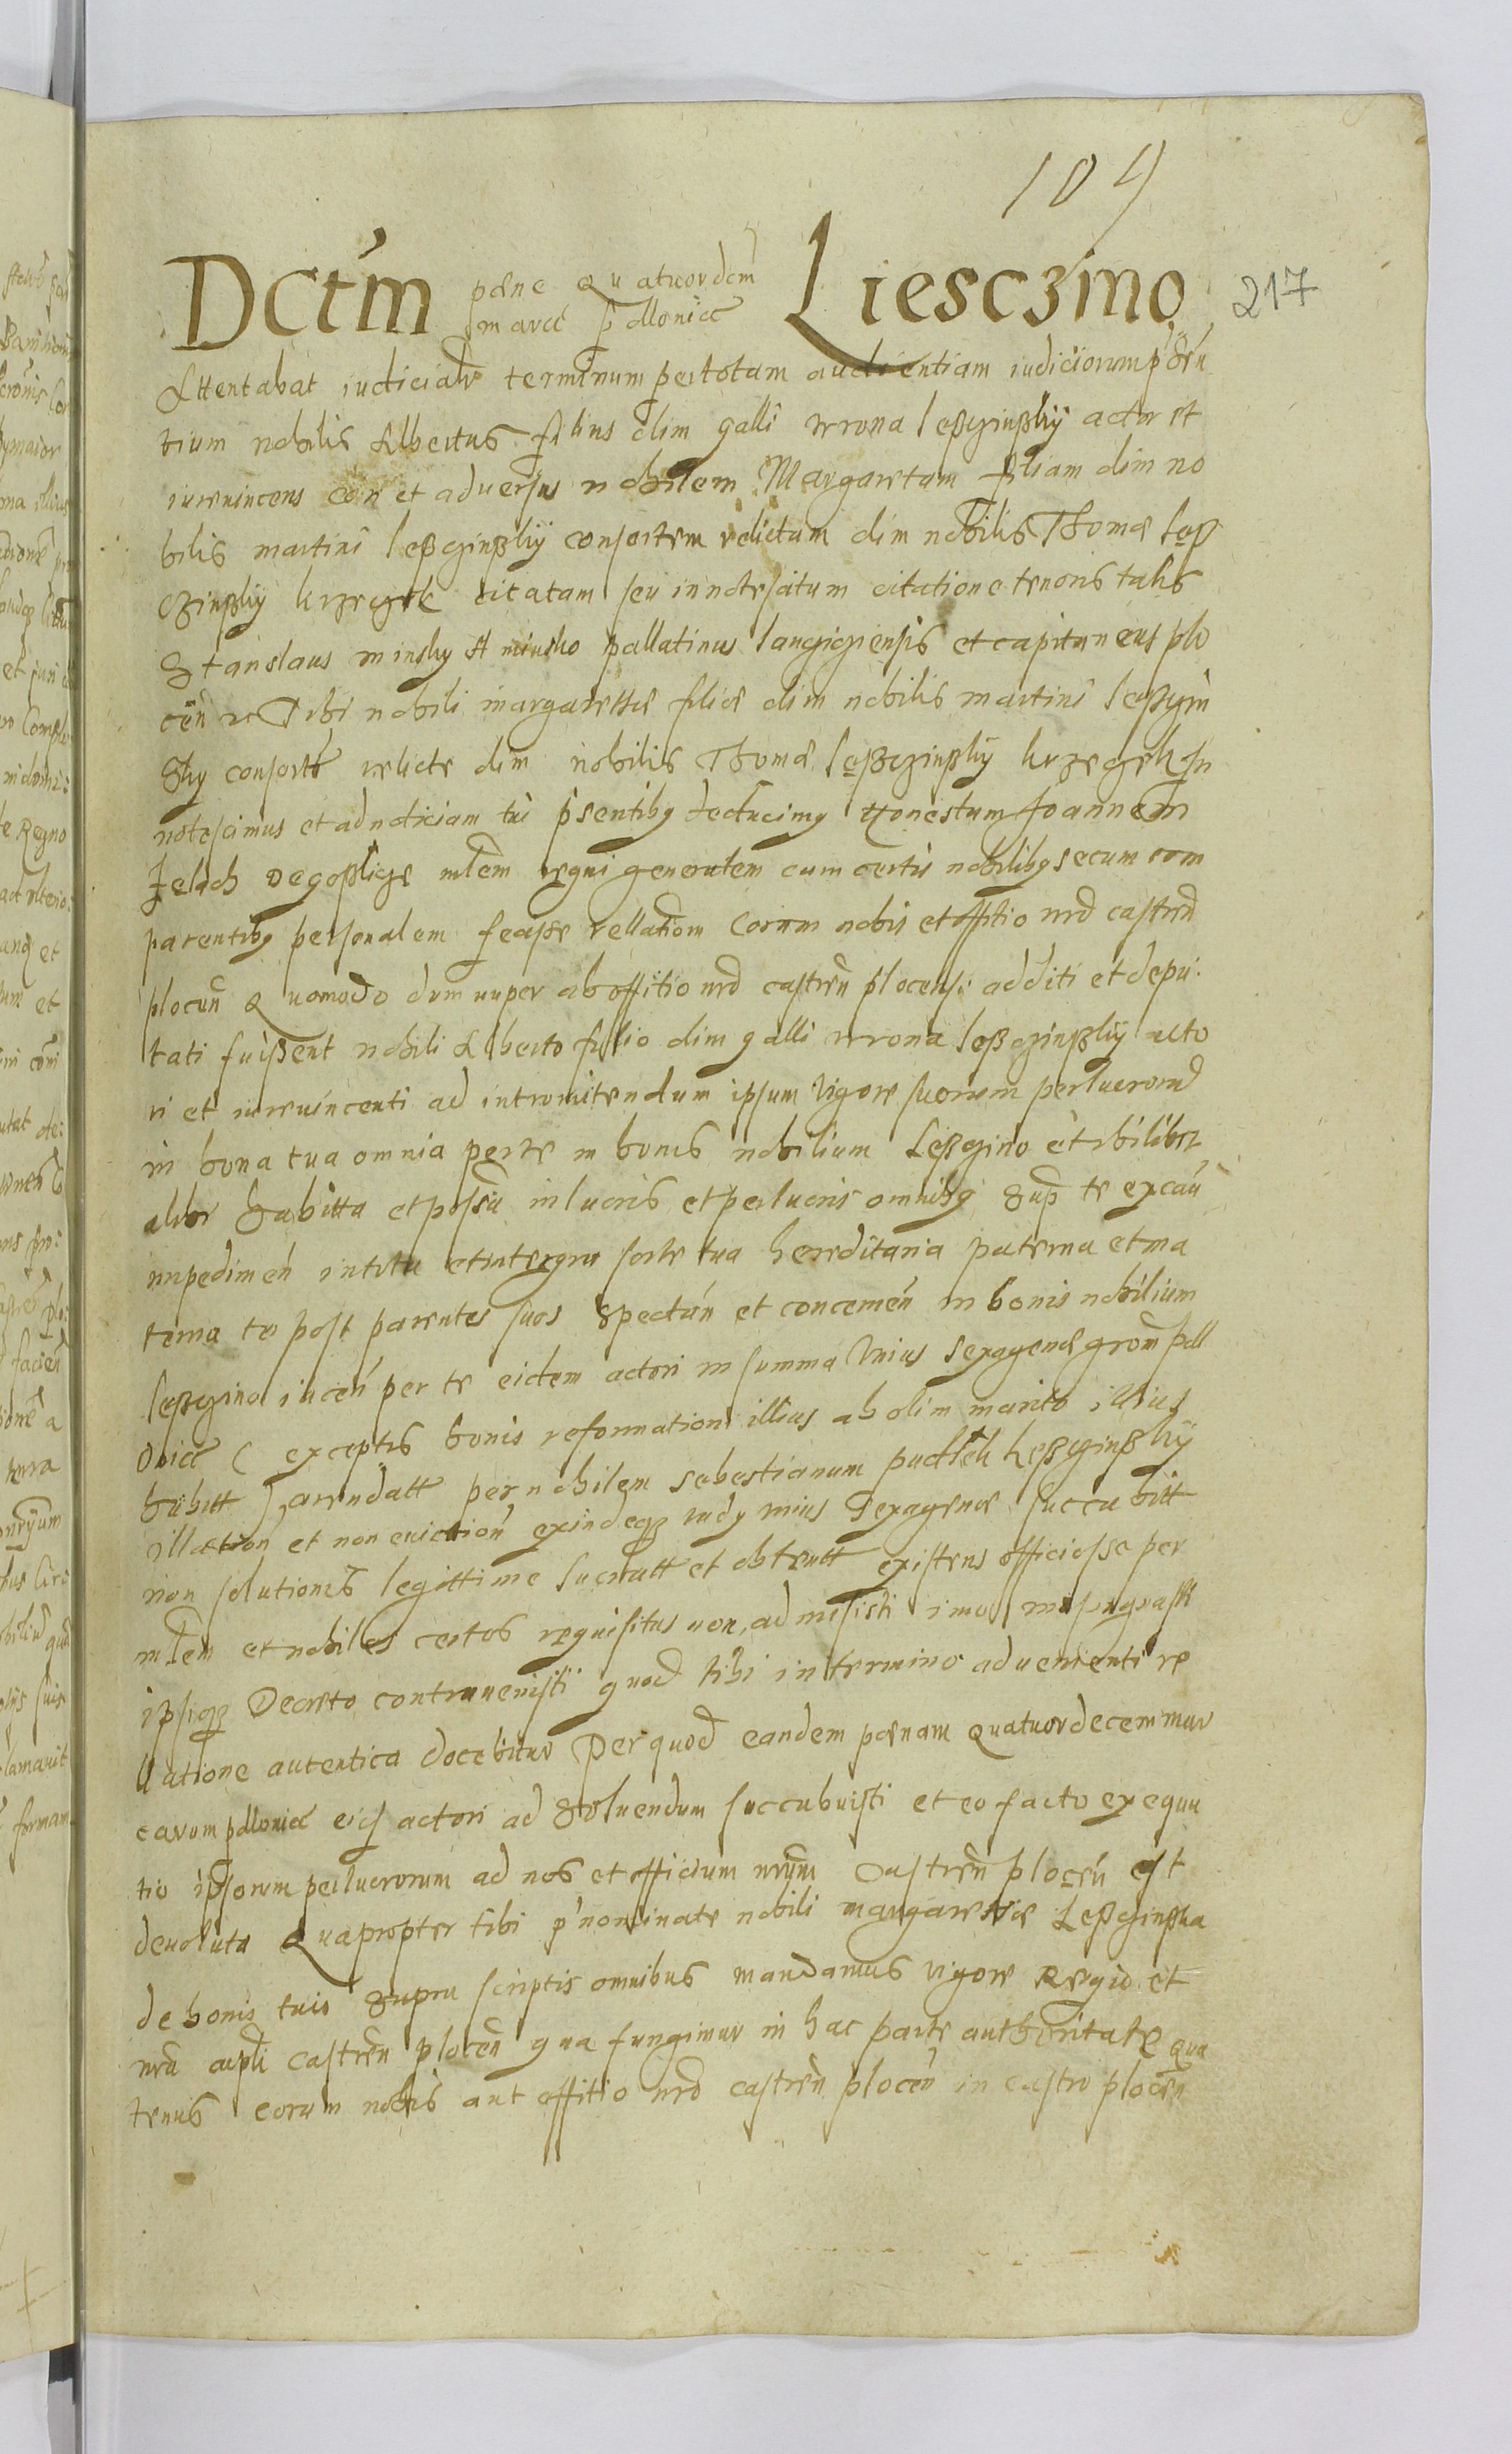 109
217
Dctm pœne Quatuordcm Liesczino
marcẽ pollonicẽ
Attentabat iudicialr terminum per totam audientiam iudiciorum pñ
tium nobilis Albertus filius olim galli wrona leßczinßkÿ actor et
iurevincens cõñ et adversus nobilem Margaretam filiam olim no
bilis martini leßczinßkÿ consortem relictam olim nobilis Thomæ leß
czinßkÿ krzeczek citatam seu innotescitam citatione tenoris talis
Stanislaus minsky A minsko pallatinus lanciciensis et capitaneus plo
ceñ etc Tibi nobili margarettæ filiæ olim nobilis martini leßczin
sky consorti relicte olim nobilis Thomæ leßczinßkÿ krzeczek In
notescimus et ad noticiam tui p̃sentibg deducimg Honestum Joannem
Zelach de goßlicze mlem regni generalem cum certis nobilibg secum com
parentibg personalem fecisse rellationem Coram nobis et offitio nrõ castreñ
ploceñ Quomodo dum nuper ab offitio nrõ castreñ plocensi additi et depu
tati fuißent nobili Alberto filio olim galli wrona leßczinßkÿ acto
ri et iurevincenti ad intromittendum ipsum vigore suorum perlucrorum
in bona tua omnia per te in bonis nobilium Leßczino et ubilibet
alibr habitta et posseß in lucris et perlucris omnibg sup te ex cau
impedimeñ intrõ et integra sorte tua hereditaria paterna et ma
terna te post parentes suos spectañ et concerneñ in bonis nobilium
leßczino iaceñ per te eidem actori in summa Vnius sexagenæ grom poll
onicẽ ( exceptis bonis reformationi illius ab olim marito illius
habitt ) arendatt per nobilem sebastianum pudlek leßczinßkÿ
illation et non eviction exindeqz vadÿ vnius Sexagenæ succubitt
non solutionis legittime lucratt et obtentt existens officiosse per
mlem et nobiles certos requisitus non admisisti imo impugnasti
ipsiqz Decreto contravenisti quod tibi in termino advenienti re
llatione autentica docebitur Per quod eandem pœnam quatuordecem mar
carum pollonicẽ eid actori ad solvendum succubuisti et eo facto exequu
tio ipsorum perlucrorum ad nos et officium nrum Castreñ ploceñ est
devoluta Quapropter tibi p̃nominate nobili margaretæ Leßczinßka
de bonis tuis supra scriptis omnibus mandamus vigore Regio et
nrã capli castreñ ploceñ qua fungimur in hac parte authoritate qua
tenus coram nobis aut offitio nrõ castreñ ploceñ in castro ploceñ